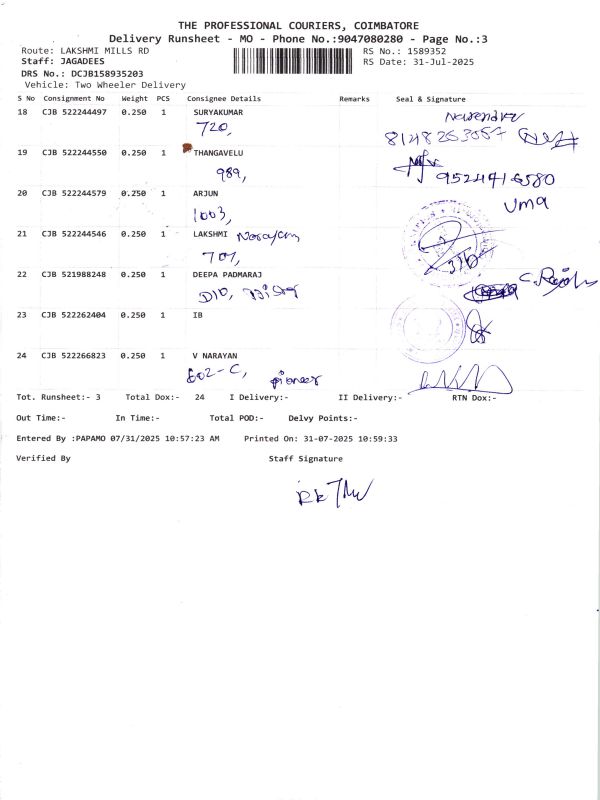 THE PROFESSIONAL COURIERS, COIMBATORE
Delivery Runsheet - MO - Phone No.:9047080280 - Page No.:3
Route: LAKSHMI MILLS RD RS No.: 1589352
Staff: JAGADEES RS Date: 31-Jul-2025
DRS No.: DCJB158935203
Vehicle: Two Wheeler Delivery
S No Consignment No Weight PCS Consignee Details Remarks Seal & Signature
18 CJB 522244497 0.250 1 SURYAKUMAR
720,
19 CJB 522244550 0.250 1 THANGAVELU
989, 9524416580
20 CJB 522244579 0.250 1 ARJUN
1003, Uma
21 CJB 522244546 0.250 1 LAKSHMI
707,
22 CJB 521988248 0.250 1 DEEPA PADMARAJ
23 CJB 522262404 0.250 1 IB
24 CJB 522266823 0.250 1 V NARAYAN
602-C, pioneer
Tot. Runsheet:- 3 Total Dox:- 24 I Delivery:- II Delivery:- RTN Dox:-
Out Time:- In Time:- Total POD:- Delvy Points:-
Entered By :PAPAMO 07/31/2025 10:57:23 AM Printed On: 31-07-2025 10:59:33
Verified By Staff Signature